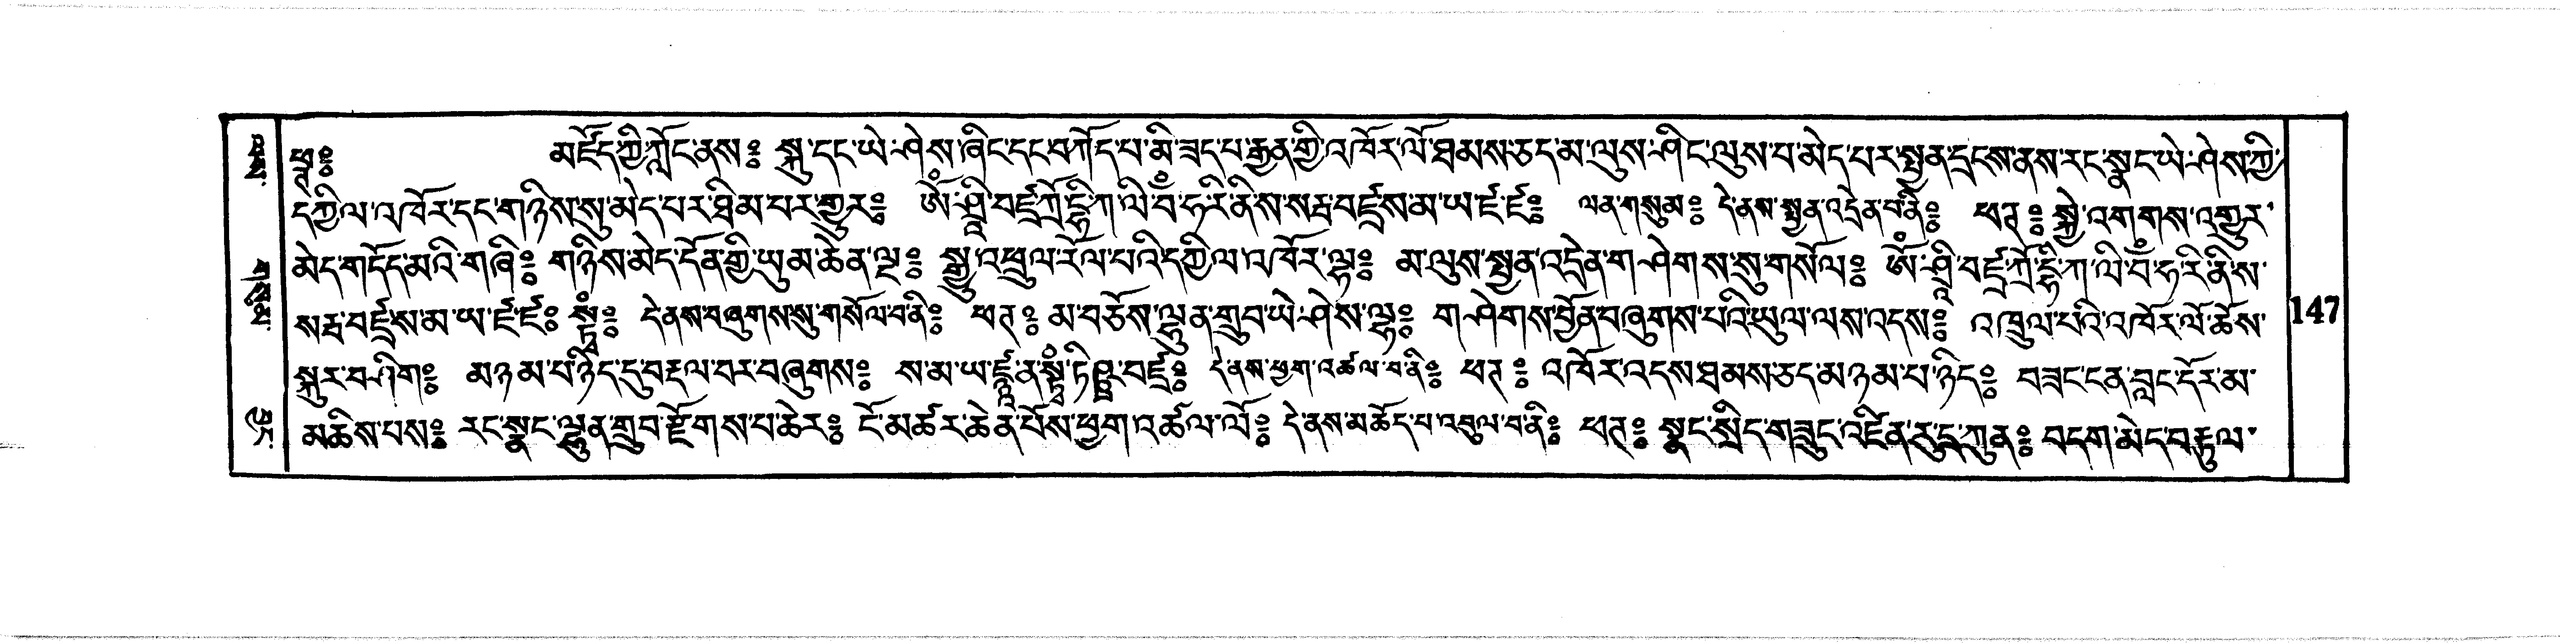 ཕཊ༔ མཛོད་ཀྱི་ཀློང་ནས༔ སྐུ་དང་ཡེ་ཤེས་ཞིང་དང་བཀོད་པ་མི་ཟད་པ་རྒྱན་གྱི་འཁོར་ལོ་ཐམས་ཅད་མ་ལུས་ཤིང་ལུས་པ་མེད་པར་སྤྱན་དྲངས་ནས་རང་སྣང་ཡེ་ཤེས་ཀྱི་
དཀྱིལ་འཁོར་དང་གཉིས་སུ་མེད་པར་ཐིམ་པར་གྱུར༔ ཨོཾ་ཤྲཱི་བཛྲ་ཀྲོ་དྷཱི་ཀ་ལི་བཾ་ཧ་རི་ནི་ས་སརྦ་བཛྲ་ས་མ་ཡ་ཛཿཛཿ༔ ལན་གསུམ༔ དེ་ནས་སྤྱན་འདྲེན་བ་ནི༔ ཕཊ༔ སྐྱེ་འགགས་འགྱུར་
མེད་གདོད་མའི་གཞི༔ གཉིས་མེད་དོན་གྱི་ཡུམ་ཆེན་ལ༔ སྒྱུ་འཕྲུལ་རོལ་པའི་དཀྱིལ་འཁོར་ལྷ༔ མ་ལུས་སྤྱན་འདྲེན་གཤེགས་སུ་གསོལ༔ ཨོཾ་ཤྲཱི་བཛྲ་ཀྲོ་དྷཱི་ཀ་ལི་བཾ་ཧ་རི་ནི་ས་
སརྦ་བཛྲ་ས་མ་ཡ་ཛཿཛཿ༔ སྟྭཾ༔ དེ་ནས་བཞུགས་སུ་གསོལ་བ་ནི༔ ཕཊ༔ མ་བཅོས་ལྷུན་གྲུབ་ཡེ་ཤེས་ལྷ༔ གཤེགས་བྱོན་བཞུགས་པའི་ཡུལ་ལས་འདས༔ འཁྲུལ་པའི་འཁོར་ལོ་ཆོས་
སྐུར་བཤིག༔ མཉམ་པ་ཉིད་དུ་བརྡལ་བར་བཞུགས༔ ས་མ་ཡ་ཛྙཱ་ན་སྟྭཾ་ཏིཥྛ་བཛྲ༔ དེ་ནས་ཕྱག་འཚལ་བ་ནི༔ ཕཊ༔ འཁོར་འདས་ཐམས་ཅད་མཉམ་པ་ཉིད༔ བཟང་ངན་བླང་དོར་མ་
མཆིས་པས༔ རང་སྣང་ལྷུན་གྲུབ་རྫོགས་པ་ཆེར༔ ངོ་མཚར་ཆེན་པོས་ཕྱག་འཚལ་ལོ༔ དེ་ནས་མཆོད་པ་འབུལ་བ་ནི༔ ཕཊ༔ སྣང་སྲིད་གཟུང་འཛིན་རུ་དྲ་ཀུན༔ བདག་མེད་བརྟུལ་
147